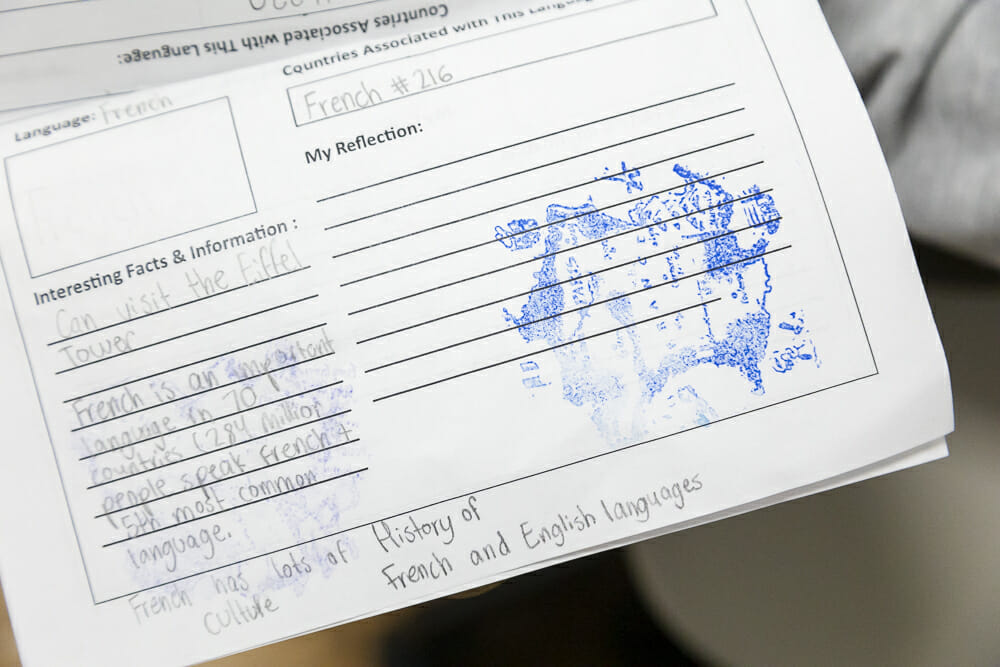 Countries Associated with This Language:
Countries Associated with
Language: French
French # 216
My Reflection:
Interesting Facts & Information :
Can visit the Eiffel
Tower
French is an important
language in 70
countries (284 million
people speak French +
5th most common
language.
French has lots of
culture
History of
French and English languages